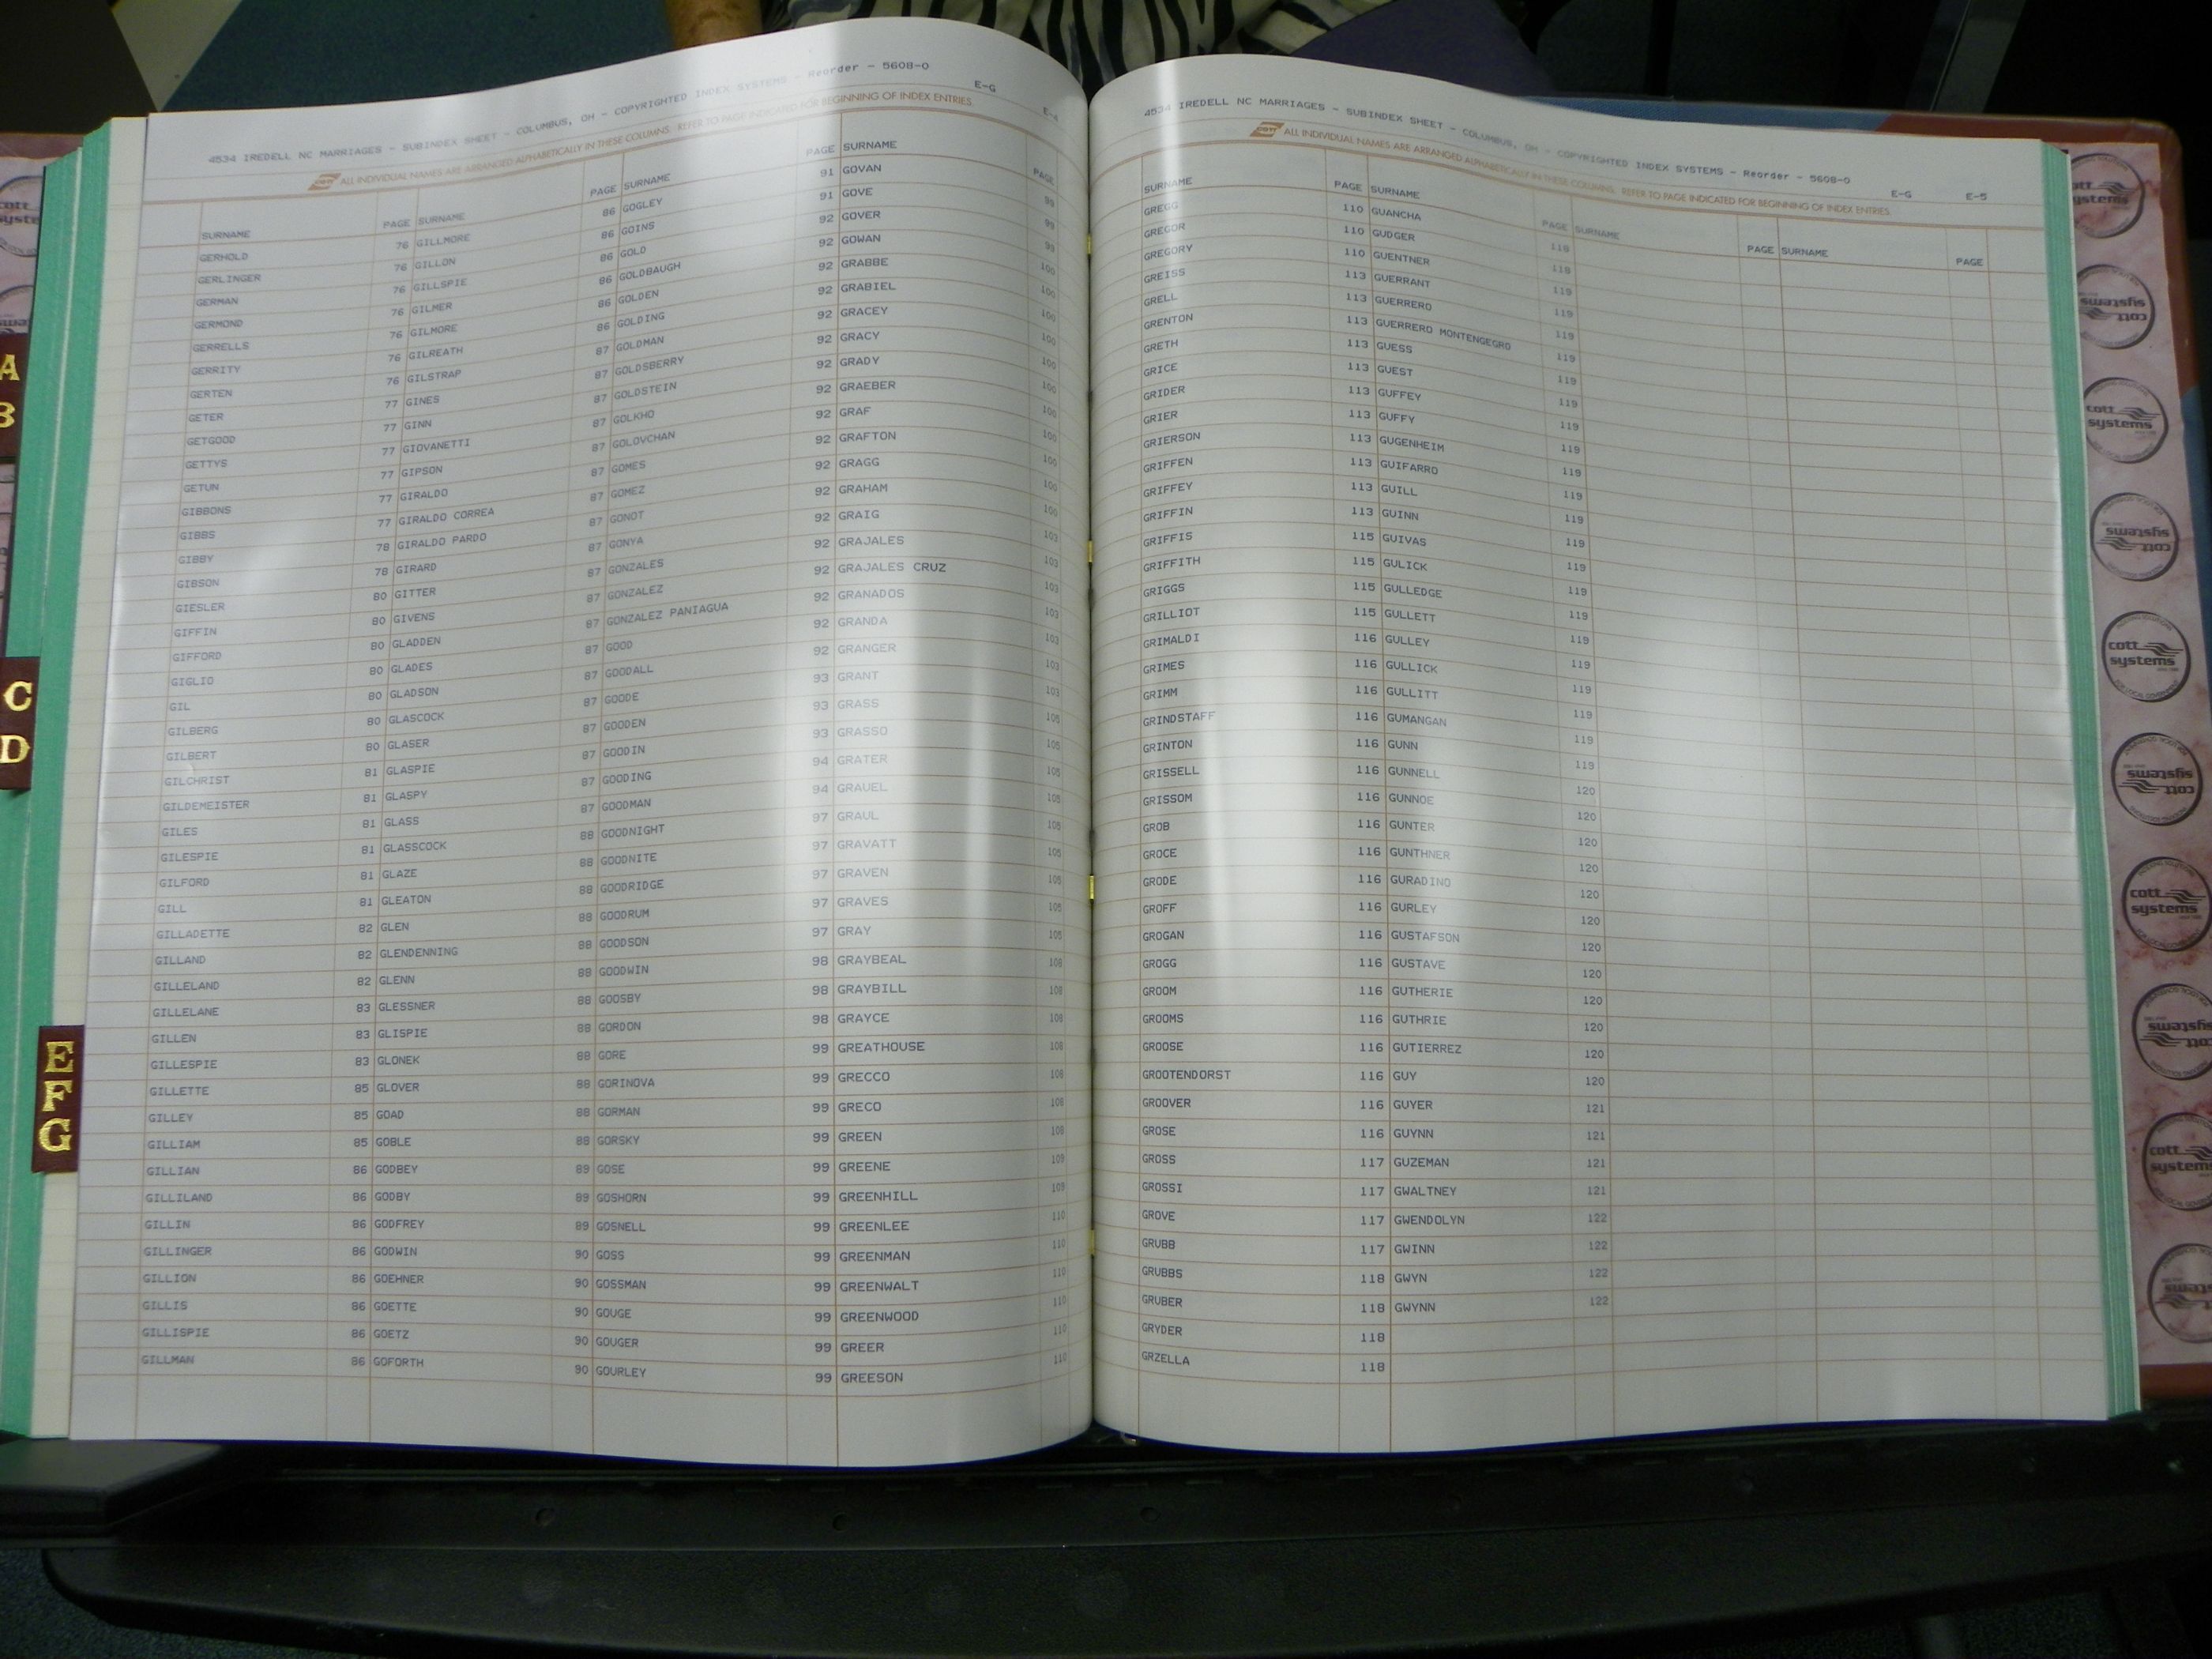 4534 IREDELL NC MARRIAGES - SUBINDEX SHEET - COLUMBUS, OH - COPYRIGHTED INDEX SYSTEMS - Reorder - 5608-0 E-G E-4
cott ALL INDIVIDUAL NAMES ARE ARRANGED ALPHABETICALLY IN THESE COLUMNS. REFER TO PAGE INDICATED FOR BEGINNING OF INDEX ENTRIES.
SURNAME PAGE SURNAME PAGE SURNAME PAGE SURNAME PAGE
GERHOLD 76 GILLMORE 86 GOGLEY 91 GOVAN 99
GERLINGER 76 GILLON 86 GOINS 91 GOVE 99
GERMAN 76 GILLSPIE 86 GOLD 92 GOVER 99
GERMOND 76 GILMER 86 GOLDBAUGH 92 GOWAN 100
GERRELLS 76 GILMORE 86 GOLDEN 92 GRABBE 100
GERRITY 76 GILREATH 86 GOLDING 92 GRABIEL 100
GERTEN 76 GILSTRAP 87 GOLDMAN 92 GRACEY 100
GETER 77 GINES 87 GOLDSBERRY 92 GRACY 100
GETGOOD 77 GINN 87 GOLDSTEIN 92 GRADY 100
GETTYS 77 GIOVANETTI 87 GOLKHO 92 GRAEBER 100
GETUN 77 GIPSON 87 GOLOVCHAN 92 GRAF 100
GIBBONS 77 GIRALDO 87 GOMES 92 GRAFTON 100
GIBBS 77 GIRALDO CORREA 87 GOMEZ 92 GRAGG 100
GIBBY 78 GIRALDO PARDO 87 GONOT 92 GRAHAM 100
GIBSON 78 GIRARD 87 GONYA 92 GRAIG 103
GIESLER 80 GITTER 87 GONZALES 92 GRAJALES 103
GIFFIN 80 GIVENS 87 GONZALEZ 92 GRAJALES CRUZ 103
GIFFORD 80 GLADDEN 87 GONZALEZ PANIAGUA 92 GRANADOS 103
GIGLIO 80 GLADES 87 GOOD 92 GRANDA 103
GIL 80 GLADSON 87 GOODALL 92 GRANGER 103
GILBERG 80 GLASCOCK 87 GOODE 93 GRANT 103
GILBERT 80 GLASER 87 GOODEN 93 GRASS 105
GILCHRIST 81 GLASPIE 87 GOODIN 93 GRASSO 105
GILDEMEISTER 81 GLASPY 87 GOODING 94 GRATER 105
GILES 81 GLASS 87 GOODMAN 94 GRAUEL 105
GILESPIE 81 GLASSCOCK 88 GOODNIGHT 97 GRAUL 105
GILFORD 81 GLAZE 88 GOODNITE 97 GRAVATT 105
GILL 81 GLEATON 88 GOODRIDGE 97 GRAVEN 105
GILLADETTE 82 GLEN 88 GOODRUM 97 GRAVES 105
GILLAND 82 GLENDENNING 88 GOODSON 97 GRAY 105
GILLELAND 82 GLENN 88 GOODWIN 98 GRAYBEAL 108
GILLELANE 83 GLESSNER 88 GOOSBY 98 GRAYBILL 108
GILLEN 83 GLISPIE 88 GORDON 98 GRAYCE 108
GILLESPIE 83 GLONEK 88 GORE 99 GREATHOUSE 108
GILLETTE 85 GLOVER 88 GORINOVA 99 GRECCO 108
GILLEY 85 GOAD 88 GORMAN 99 GRECO 108
GILLIAM 85 GOBLE 88 GORSKY 99 GREEN 108
GILLIAN 86 GODBEY 89 GOSE 99 GREENE 109
GILLILAND 86 GODBY 89 GOSHORN 99 GREENHILL 109
GILLIN 86 GODFREY 89 GOSNELL 99 GREENLEE 110
GILLINGER 86 GODWIN 90 GOSS 99 GREENMAN 110
GILLION 86 GOEHNER 90 GOSSMAN 99 GREENWALT 110
GILLIS 86 GOETTE 90 GOUGE 99 GREENWOOD 110
GILLISPIE 86 GOETZ 90 GOUGER 99 GREER 110
GILLMAN 86 GOFORTH 90 GOURLEY 99 GREESON 110
4534 IREDELL NC MARRIAGES - SUBINDEX SHEET - COLUMBUS, OH - COPYRIGHTED INDEX SYSTEMS - Reorder - 5608-0 E-G E-5
cott ALL INDIVIDUAL NAMES ARE ARRANGED ALPHABETICALLY IN THESE COLUMNS. REFER TO PAGE INDICATED FOR BEGINNING OF INDEX ENTRIES.
SURNAME PAGE SURNAME PAGE SURNAME PAGE SURNAME PAGE
GREGG 110 GUANCHA 118
GREGOR 110 GUDGER 118
GREGORY 110 GUENTNER 119
GREISS 113 GUERRANT 119
GRELL 113 GUERRERO 119
GRENTON 113 GUERRERO MONTENGEGRO 119
GRETH 113 GUESS 119
GRICE 113 GUEST 119
GRIDER 113 GUFFEY 119
GRIER 113 GUFFY 119
GRIERSON 113 GUGENHEIM 119
GRIFFEN 113 GUIFARRO 119
GRIFFEY 113 GUILL 119
GRIFFIN 113 GUINN 119
GRIFFIS 115 GUIVAS 119
GRIFFITH 115 GULICK 119
GRIGGS 115 GULLEDGE 119
GRILLIOT 115 GULLETT 119
GRIMALDI 116 GULLEY 119
GRIMES 116 GULLICK 119
GRIMM 116 GULLITT 119
GRINDSTAFF 116 GUMANGAN 119
GRINTON 116 GUNN 119
GRISSELL 116 GUNNELL 120
GRISSOM 116 GUNNOE 120
GROB 116 GUNTER 120
GROCE 116 GUNTHNER 120
GRODE 116 GURADINO 120
GROFF 116 GURLEY 120
GROGAN 116 GUSTAFSON 120
GROGG 116 GUSTAVE 120
GROOM 116 GUTHERIE 120
GROOMS 116 GUTHRIE 120
GROOSE 116 GUTIERREZ 120
GROOTENDORST 116 GUY 120
GROOVER 116 GUYER 121
GROSE 116 GUYNN 121
GROSS 117 GUZEMAN 121
GROSSI 117 GWALTNEY 121
GROVE 117 GWENDOLYN 122
GRUBB 117 GWINN 122
GRUBBS 118 GWYN 122
GRUBER 118 GWYNN 122
GRYDER 118
GRZELLA 118
A
B
C
D
E
F
G
cott systems
cott systems
cott systems
cott systems
cott systems
cott systems
cott systems
cott systems
cott systems
cott systems